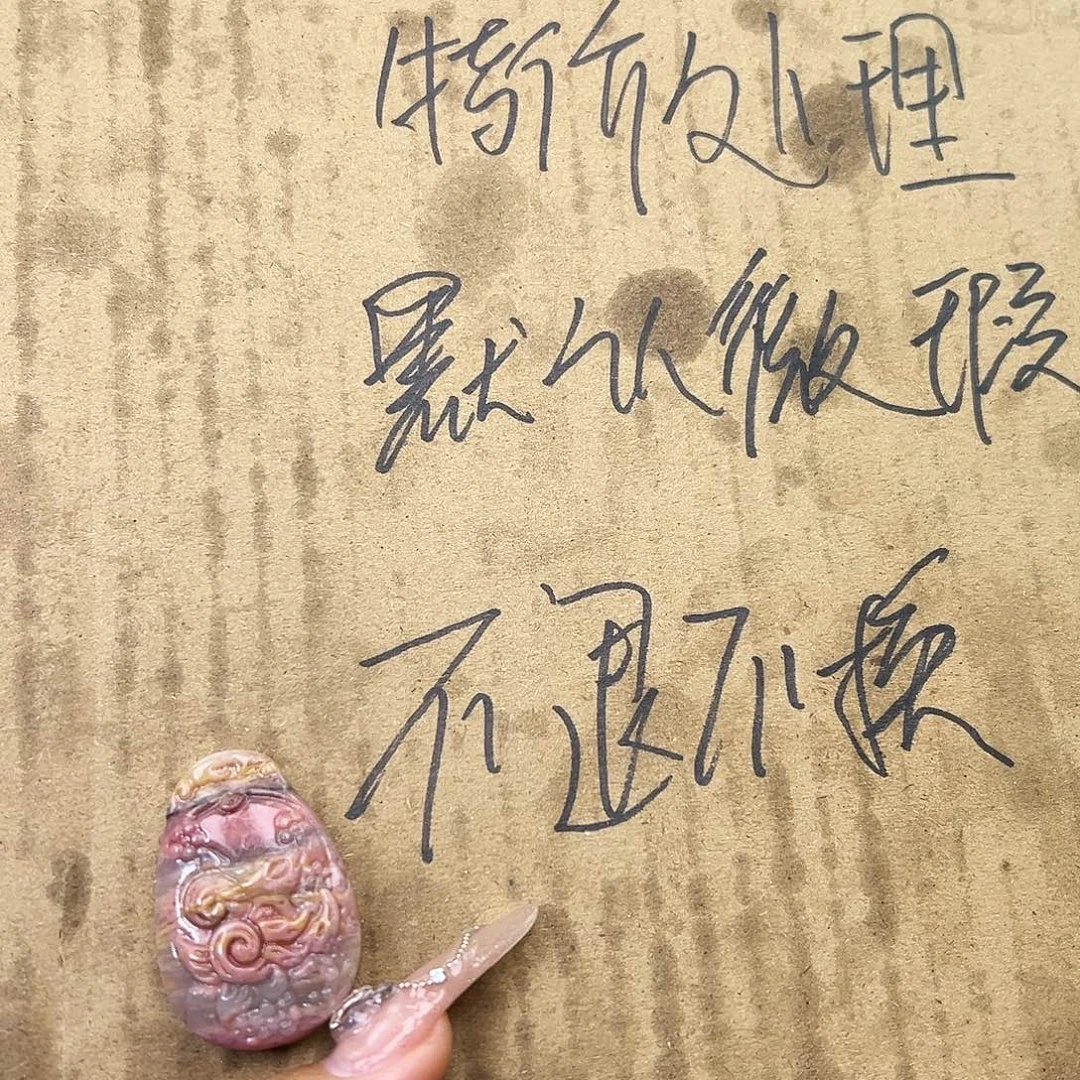 特价处理
默认微瑕
不退不换